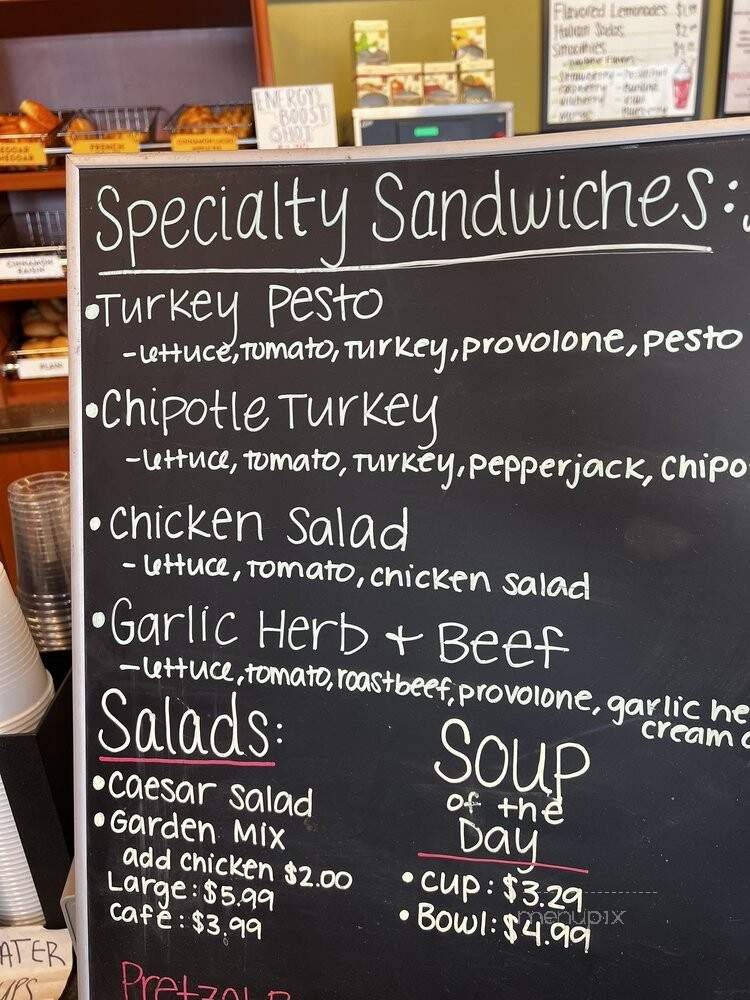 Flavored Lemonades
Italian Sodas
Smoothies
ENERGY
BOOST
SHOT
FRENCH
CINNAMON
RAISIN
PLAIN
Specialty Sandwiches:
•Turkey Pesto
-lettuce, tomato, turkey, provolone, pesto
•Chipotle Turkey
-lettuce, tomato, turkey, pepperjack, chipo
•Chicken Salad
-lettuce, tomato, chicken salad
•Garlic Herb + Beef
-lettuce, tomato, roastbeef, provolone, garlic he
cream c
Salads:
•Caesar Salad
•Garden Mix
add chicken $2.00
Large: $5.99
Café: $3.99
Soup
of the
Day
•Cup: $3.29
•Bowl: $4.99
menupix
ATER
UPS